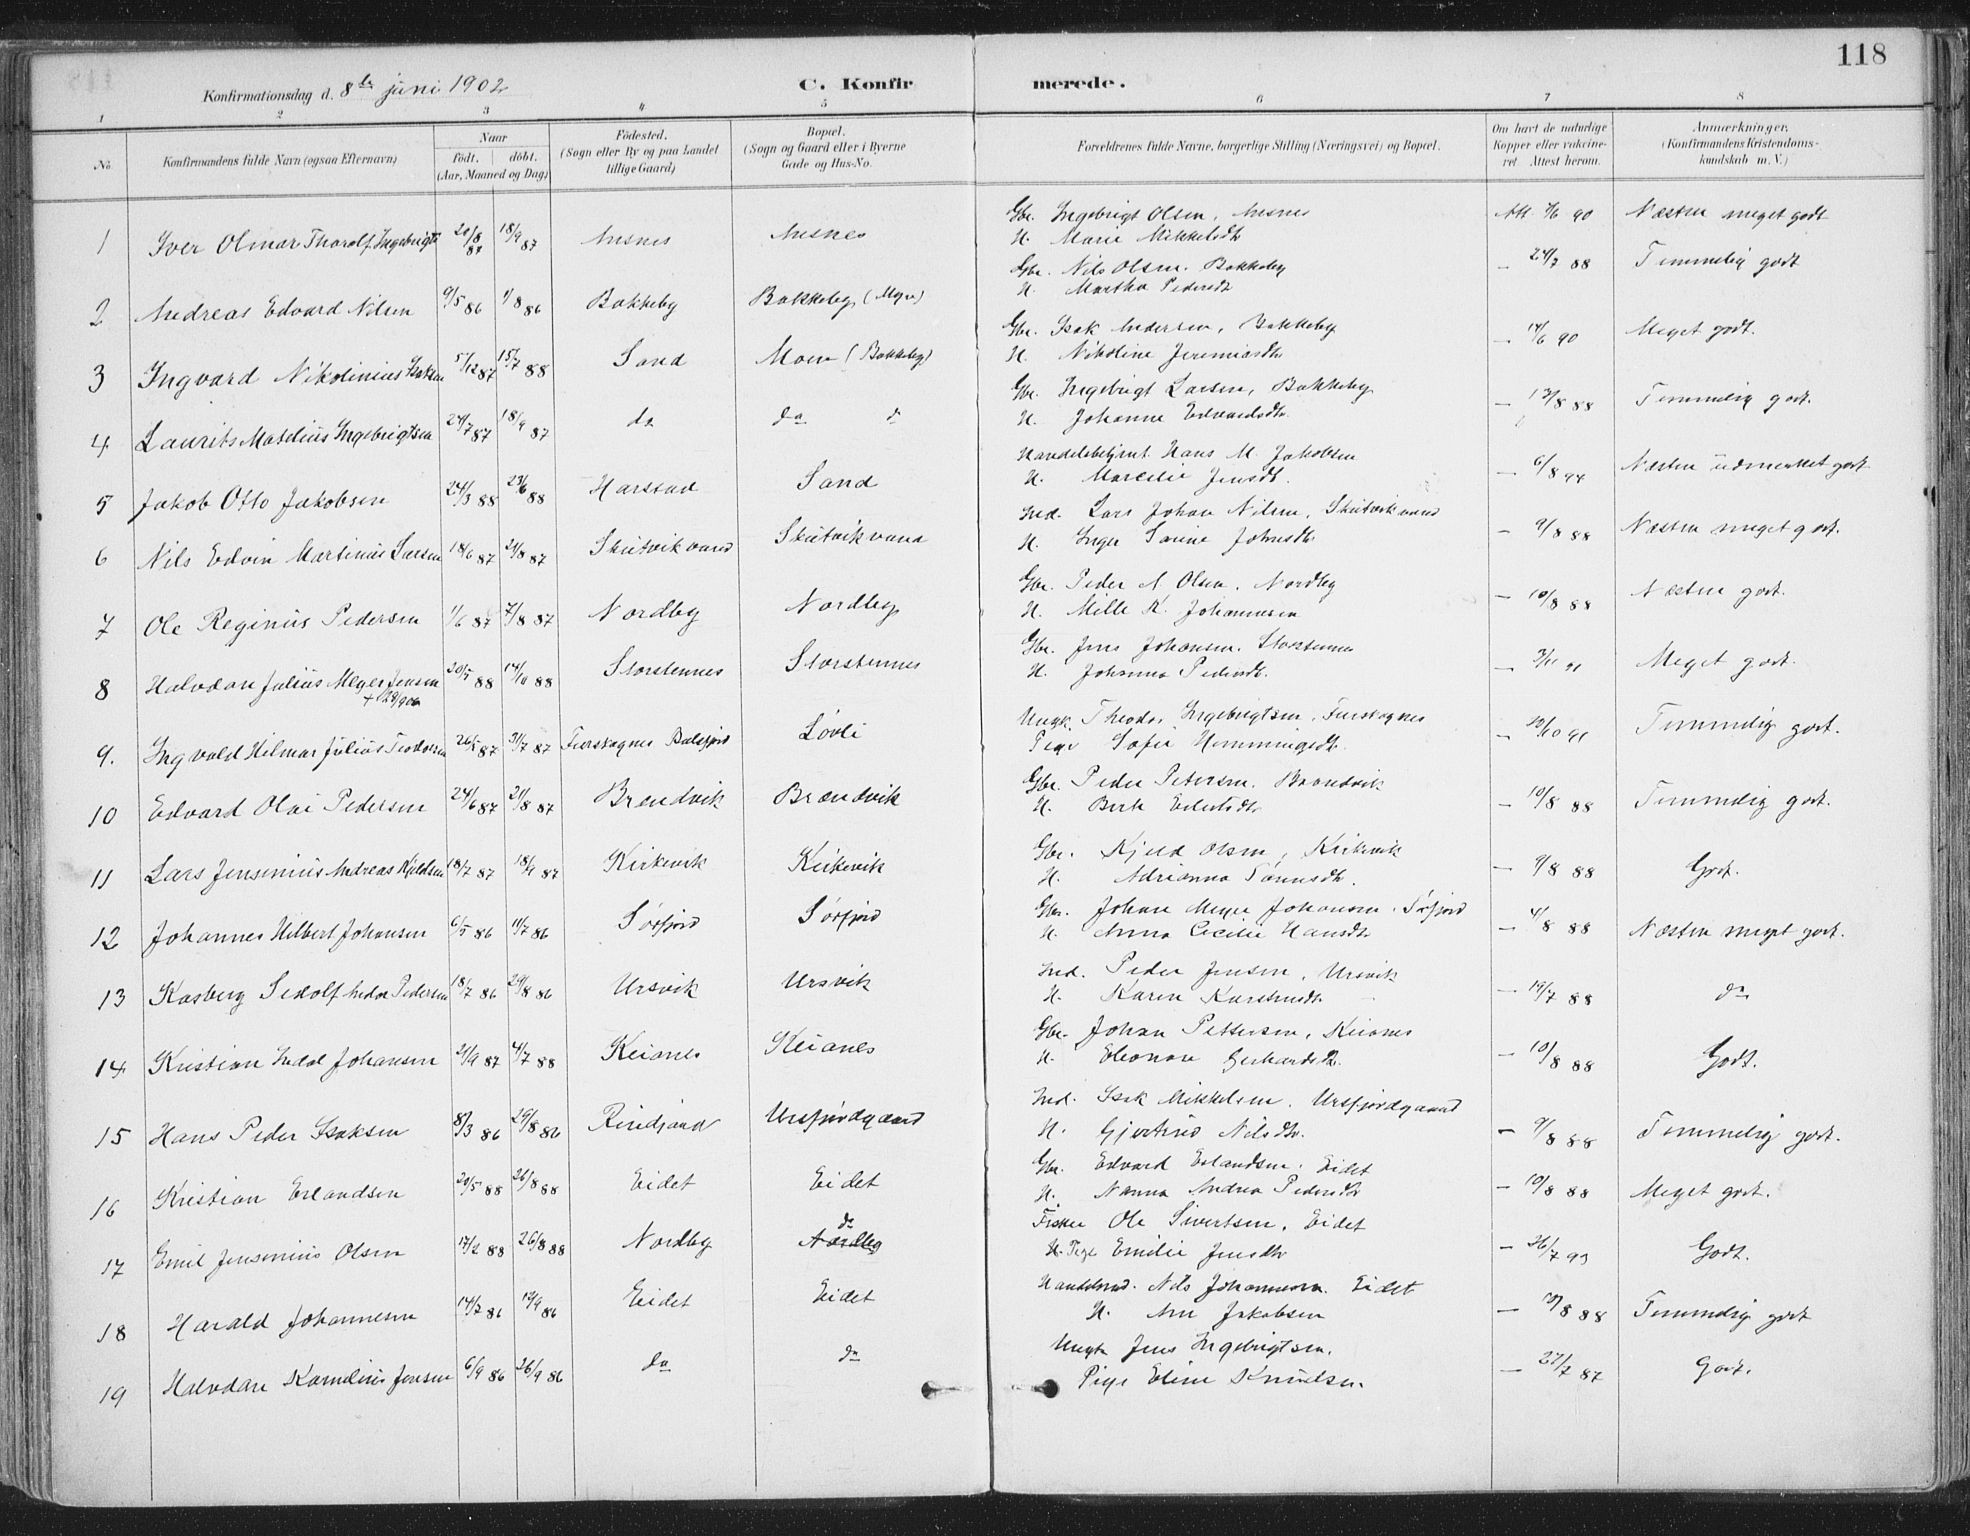 118
Konfirmationsdag d. 8de juni 1902
C. Konfirmerede.
1 2 3 4 5 6 7 8
No.
Konfirmandens fulde Navn (ogsaa Efternavn)
Naar
født. døbt.
(Aar, Maaned og Dag)
Fødested.
(Sogn eller By og paa Landet tillige Gaard)
Bopæl.
(Sogn og Gaard eller i Byerne Gade og Hus-No.
Forældrenes fulde Navne, borgerlige Stilling (Næringsvei) og Bopæl.
Om havt de naturlige Kopper eller vaccineret. Attest herom.
Anmærkninger.
(Konfirmandens Kristendomskundskab m. V.)
1 Iver Olmar Thorolf Ingebrigts 20/8 87 18/9 87 Ansnes Ansnes Gbr. Ingebrigt Olsen, Ansnes
H. Marie Mikkelsdtr Att. 7/6 90 Næsten meget godt
2 Andreas Edvard Nilsen 9/5 86 1/8 86 Bakkeby Bakkeby (Moen) Gbr. Nils Olsen. Bakkeby
H. Martha Pedersdtr – 24/7 88 Temmelig godt
3 Ingvard Nikolinius Isaksen 5/12 87 15/7 88 Sand Moen (Bakkeby) Gbr. Isak Andersen, Bakkeby
H. Nikoline Jeremiasdtr – 14/6 90 Meget godt.
4 Laurits Matelius Ingebrigtsen 24/7 87 18/9 87 do do Gbr. Ingebrigt Larsen, Bakkeby
H. Johanne Edvardsdtr. – 13/8 88 Temmelig godt.
5 Jakob Otto Jakobsen 24/3 88 23/6 88 Harstad Sand Handelsbetjent Hans M. Jakobsen
H. Marcelie Jensdtr. – 6/8 94 Næsten udmerket godt
6 Nils Edvin Martinus Larsen 18/6 87 21/8 87 Skutvikvand Skutvikvand Ind. Lars Johan Nilsen, Skutvikvand
H. Inger Sarine Johnsdtr – 9/8 88 Næsten meget godt.
7 Ole Reginius Pedersen 1/6 87 7/8 87 Nordby Nordby Gbr. Peder N. Olsen. Nordby
H. Mille K. Johannesen – 10/8 88 Næsten godt.
8 Halvdan Julius Meyer Jensen 20/5 88 14/10 88 Storstennes Storstennes Gbr. Jens Johansen. Storstennes
H. Johanna Pedersdtr. – 3/11 91 Meget godt.
9. Ingvald Hilmar Julius Teodorsen 26/5 87 31/7 87 Furskognes Balsfjord Løvli Ungk. Theodor Ingebrigtsen. Furskognes
Pige Sofie Hemmingsdtr. – 10/10 91 Temmelig godt.
10 Edvard Olai Pedersen 24/6 87 21/8 87 Brendvik Brændvik Gbr. Peder Petersen. Brændvik
H. Berit – 10/8 88 Temmelig godt.
11 Lars Jensenius Andreas Kjeldsen 18/7 87 18/9 87 Kirkevik Kirkevik Gbr. Kjeld Olsen, Kirkevik
H. Adrianna – 9/8 88 Godt.
12 Johannes Hilbert Johansen 6/5 86 11/7 86 Sørfjord Sørfjord Gbr. Johan Meyer Johansen. Sørfjord
H. Anna Cecilie Hansdtr – 4/8 88 Næsten meget godt.
13 Kasberg Sedolf Andor Pedersen 18/7 86 29/8 86 Ursvik Ursvik Ind. Peder Jensen, Ursvik
H. Karen Karstensdtr – 19/7 88 do
14 Kristian Indal Johansen 21/9 87 4/7 88 Keianes Keianes Gbr. Johan Pettersen, Keianes
H. Eleonore Gerhardsdtr. – 10/8 88 Godt.
15 Hans Peder Isaksen 8/3 86 29/8 86 Ursfjordgaard Ind. Isak Mikkelsen. Ursfjordgaard
H. Gjertrud Nilsdtr. – 9/8 88 Temmelig godt.
16 Kristian Erlandsen 20/5 88 26/8 88 Eidet Eidet Gbr. Edvard Erlandsen. Eidet
H. Nanna Andrea Pedersdtr – 10/8 88 Meget godt.
17 Emil Jensenius Olsen 17/2 88 26/8 88 Nordby do Nordby Fisker Ole Sivertsen, Eidet
H. Pige Emilie Jensdtr – 26/7 93 Godt.
18 Harald Johannesen 14/7 86 19/9 86 Eidet Eidet Handelsmd. Nils Johannesen. Eidet
H. Ane Jakobsen – 10/8 88 Temmelig godt
19 Halvdan Kornelius Jensen 6/9 86 26/9 86 do do Ungk. Jens Ingebrigtsen.
Pige Eline Knudsen – 27/7 87 Godt.